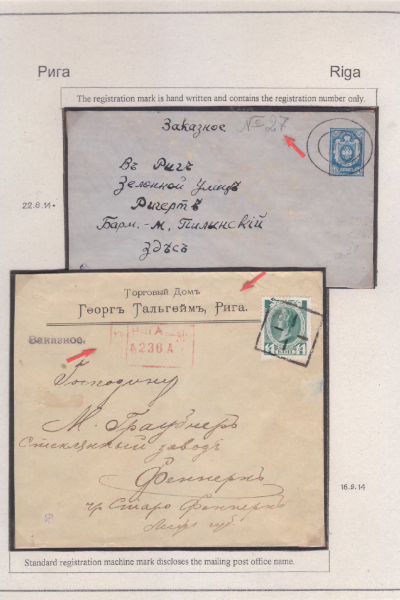 Рига
Riga
The registration mark is hand written and contains the registration number only.
Заказное
№ 27
Въ Риге
Зеленной Улице
Барм.-м. Пилинскiй
здѣсь
22.8.14
Торговый Домъ
Георгъ Тальгеймъ, Рига.
Заказное.
РИГА
236 А
Господину
М. Граубнеръ
Стеклянный заводъ
Феннернъ
ч/р Старо Феннернъ
Лифл. губ.
16.9.14
Standard registration machine mark discloses the mailing post office name.